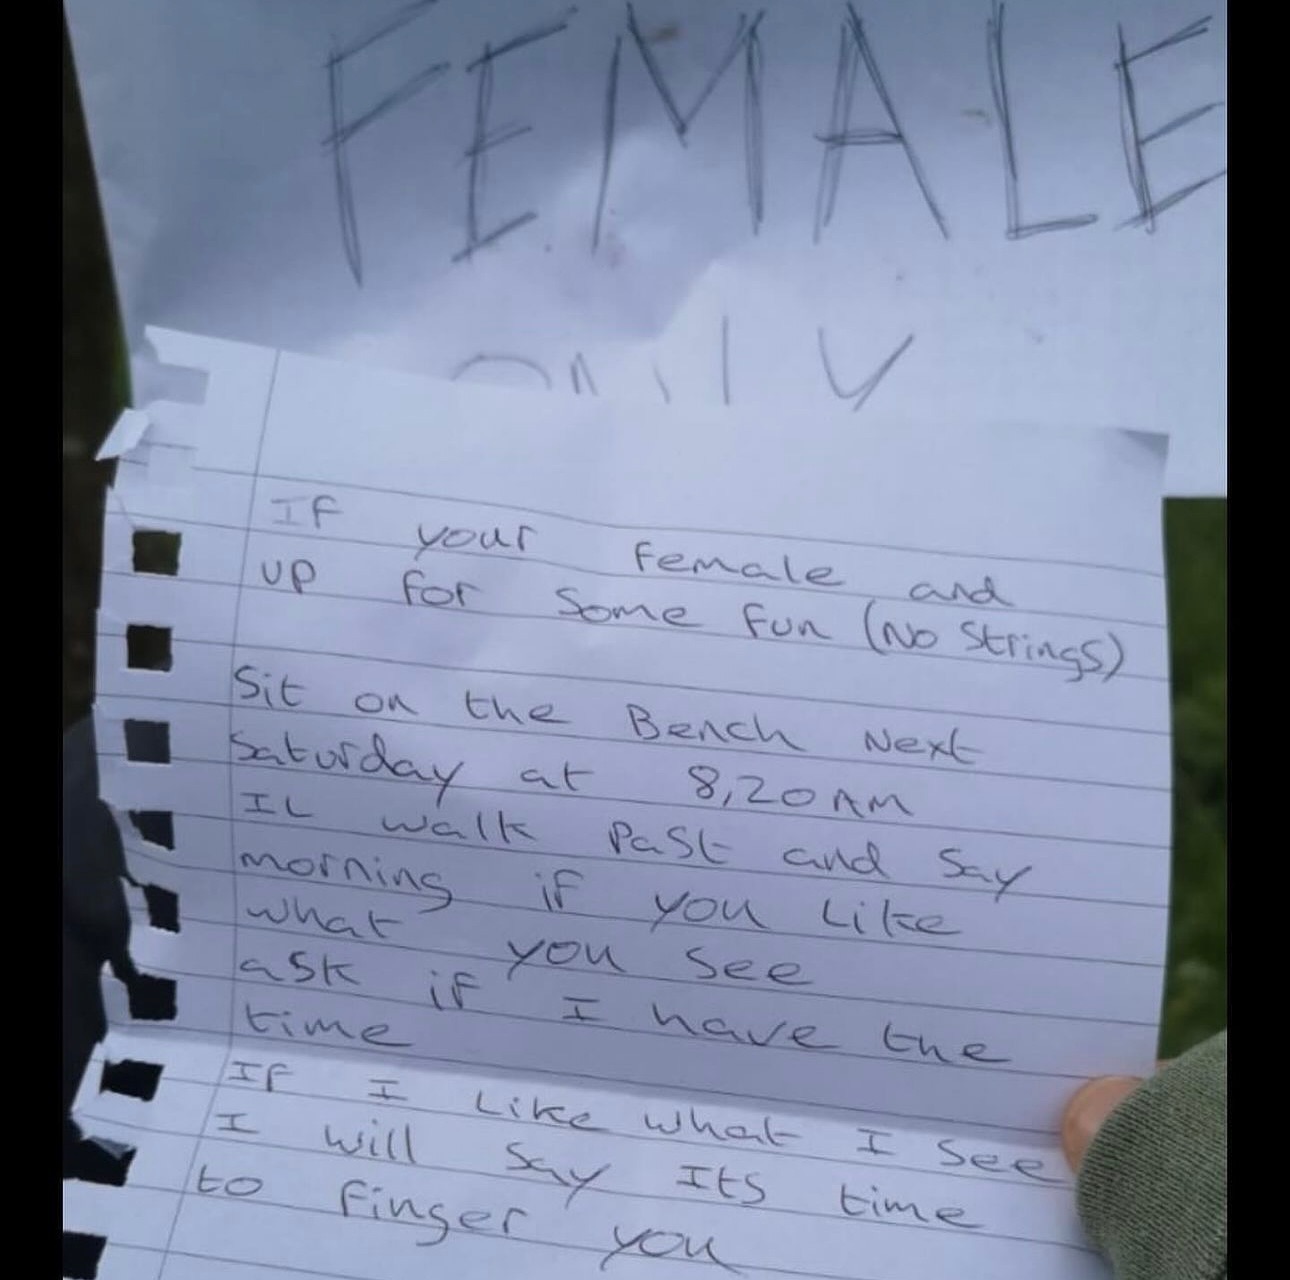 FEMALE
ONLY
IF your Female and
up for some fun (No Strings)
Sit on the Bench Next
Saturday at 8,20AM
IL walk past and Say
morning if you Like
what you see
ask if I have the
time
If I Like what I see
I will say Its time
to finger you